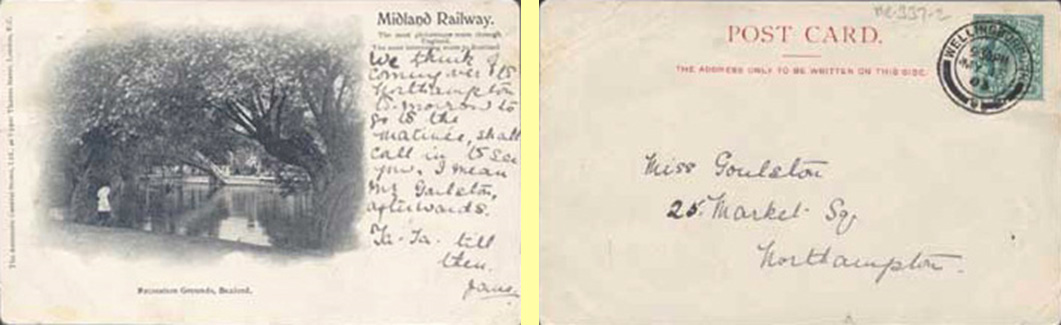 Midland Railway.
The most picturesque route through
England.
The most interesting route to Scotland
We think of
coming over to
Northampton
to-morrow to
go to the
matinée, shall
call in to see
you. I mean
Mr Goulston,
afterwards.
Ta-Ta. till
then.
Recreation Grounds, Buxford.
POST CARD.
THE ADDRESS ONLY TO BE WRITTEN ON THIS SIDE.
WELLINGBOROUGH
Miss Goulston
25. Market Sq
Northampton.